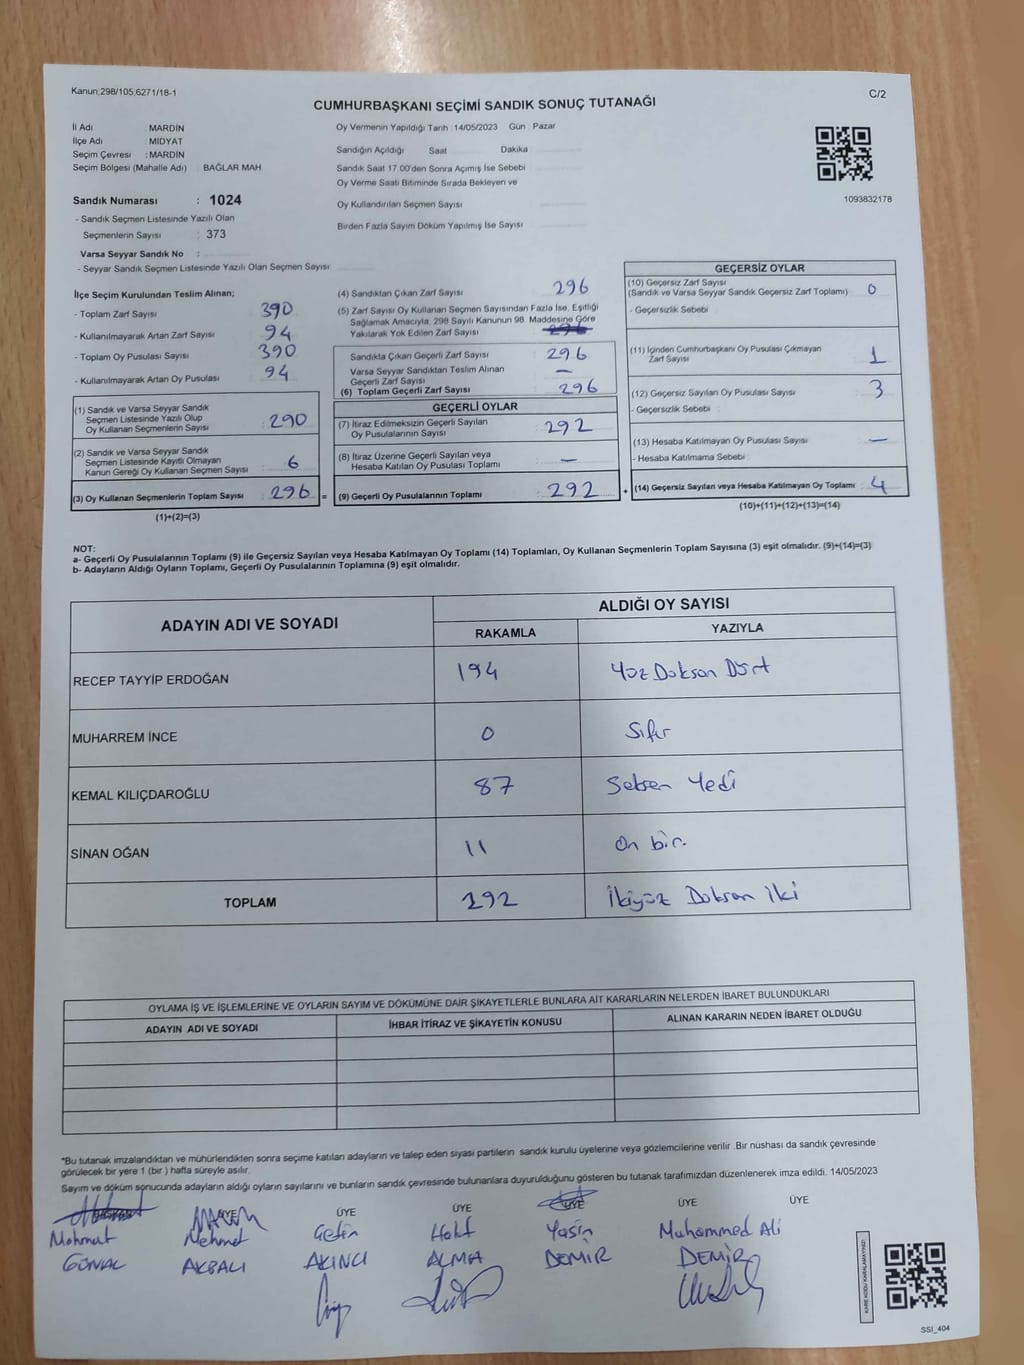 Kanun;298/105,6271/18-1
C/2
CUMHURBAŞKANI SEÇİMİ SANDIK SONUÇ TUTANAĞI
İl Adı MARDİN
İlçe Adı MİDYAT
Seçim Çevresi : MARDİN
Seçim Bölgesi (Mahalle Adı) : BAĞLAR MAH
Sandık Numarası : 1024
- Sandık Seçmen Listesinde Yazılı Olan
Seçmenlerin Sayısı : 373
Varsa Seyyar Sandık No :
- Seyyar Sandık Seçmen Listesinde Yazılı Olan Seçmen Sayısı
Oy Vermenin Yapıldığı Tarih :14/05/2023 Gün : Pazar
Sandığın Açıldığı Saat Dakika
Sandık Saat 17.00'den Sonra Açımış İse Sebebi
Oy Verme Saati Bitiminde Sırada Bekleyen ve
Oy Kullandırılan Seçmen Sayısı
Birden Fazla Sayım Döküm Yapılmış İse Sayısı
1093832178
İlçe Seçim Kurulundan Teslim Alınan;
- Toplam Zarf Sayısı : 390
- Kullanılmayarak Artan Zarf Sayısı : 94
- Toplam Oy Pusulası Sayısı : 390
- Kullanılmayarak Artan Oy Pusulası : 94
(1) Sandık ve Varsa Seyyar Sandık
Seçmen Listesinde Yazılı Olup
Oy Kullanan Seçmenlerin Sayısı : 290
(2) Sandık ve Varsa Seyyar Sandık
Seçmen Listesinde Kayıtlı Olmayan
Kanun Gereği Oy Kullanan Seçmen Sayısı : 6
(3) Oy Kullanan Seçmenlerin Toplam Sayısı : 296 =
(1)+(2)=(3)
(4) Sandıktan Çıkan Zarf Sayısı : 296
(5) Zarf Sayısı Oy Kullanan Seçmen Sayısından Fazla İse, Eşitliği
Sağlamak Amacıyla; 298 Sayılı Kanunun 98. Maddesine Göre
Yakılarak Yok Edilen Zarf Sayısı
Sandıkta Çıkan Geçerli Zarf Sayısı : 296
Varsa Seyyar Sandıktan Teslim Alınan
Geçerli Zarf Sayısı : —
(6) Toplam Geçerli Zarf Sayısı : 296
GEÇERLİ OYLAR
(7) İtiraz Edilmeksizin Geçerli Sayılan
Oy Pusulalarının Sayısı : 292
(8) İtiraz Üzerine Geçerli Sayılan veya
Hesaba Katılan Oy Pusulası Toplamı : —
(9) Geçerli Oy Pusulalarının Toplamı : 292 +
GEÇERSİZ OYLAR
(10) Geçersiz Zarf Sayısı
(Sandık ve Varsa Seyyar Sandık Geçersiz Zarf Toplamı) : 0
- Geçersizlik Sebebi :
(11) İçinden Cumhurbaşkanı Oy Pusulası Çıkmayan
Zarf Sayısı : 1
(12) Geçersiz Sayılan Oy Pusulası Sayısı : 3
- Geçersizlik Sebebi :
(13) Hesaba Katılmayan Oy Pusulası Sayısı : —
- Hesaba Katılmama Sebebi :
(14) Geçersiz Sayılan veya Hesaba Katılmayan Oy Toplamı : 4
(10)+(11)+(12)+(13)=(14)
NOT:
a- Geçerli Oy Pusulalarının Toplamı (9) ile Geçersiz Sayılan veya Hesaba Katılmayan Oy Toplamı (14) Toplamları, Oy Kullanan Seçmenlerin Toplam Sayısına (3) eşit olmalıdır. (9)+(14)=(3)
b- Adayların Aldığı Oyların Toplamı, Geçerli Oy Pusulalarının Toplamına (9) eşit olmalıdır.
ADAYIN ADI VE SOYADI
ALDIĞI OY SAYISI
RAKAMLA YAZIYLA
RECEP TAYYİP ERDOĞAN 194 Yüz Doksan Dört
MUHARREM İNCE 0 Sıfır
KEMAL KILIÇDAROĞLU 87 Seksen Yedi
SİNAN OĞAN 11 On bir.
TOPLAM 292 İkiyüz Doksan İki
OYLAMA İŞ VE İŞLEMLERİNE VE OYLARIN SAYIM VE DÖKÜMÜNE DAİR ŞİKAYETLERLE BUNLARA AİT KARARLARIN NELERDEN İBARET BULUNDUKLARI
ADAYIN ADI VE SOYADI İHBAR İTİRAZ VE ŞİKAYETİN KONUSU ALINAN KARARIN NEDEN İBARET OLDUĞU
*Bu tutanak imzalandıktan ve mühürlendikten sonra seçime katılan adayların ve talep eden siyasi partilerin sandık kurulu üyelerine veya gözlemcilerine verilir .Bir nüshası da sandık çevresinde
görülecek bir yere 1 (bir ) hafta süreyle asılır.
Sayım ve döküm sonucunda adayların aldığı oyların sayılarını ve bunların sandık çevresinde bulunanlara duyurulduğunu gösteren bu tutanak tarafımızdan düzenlenerek imza edildi. 14/05/2023
ÜYE ÜYE ÜYE ÜYE ÜYE ÜYE
Mahmut Mehmet Çetin Halit Yasin Muhammed Ali
AKBALI AKINCI ALMA DEMİR DEMİR
KARE KODU KARALAMAYINIZ!
SSİ_404